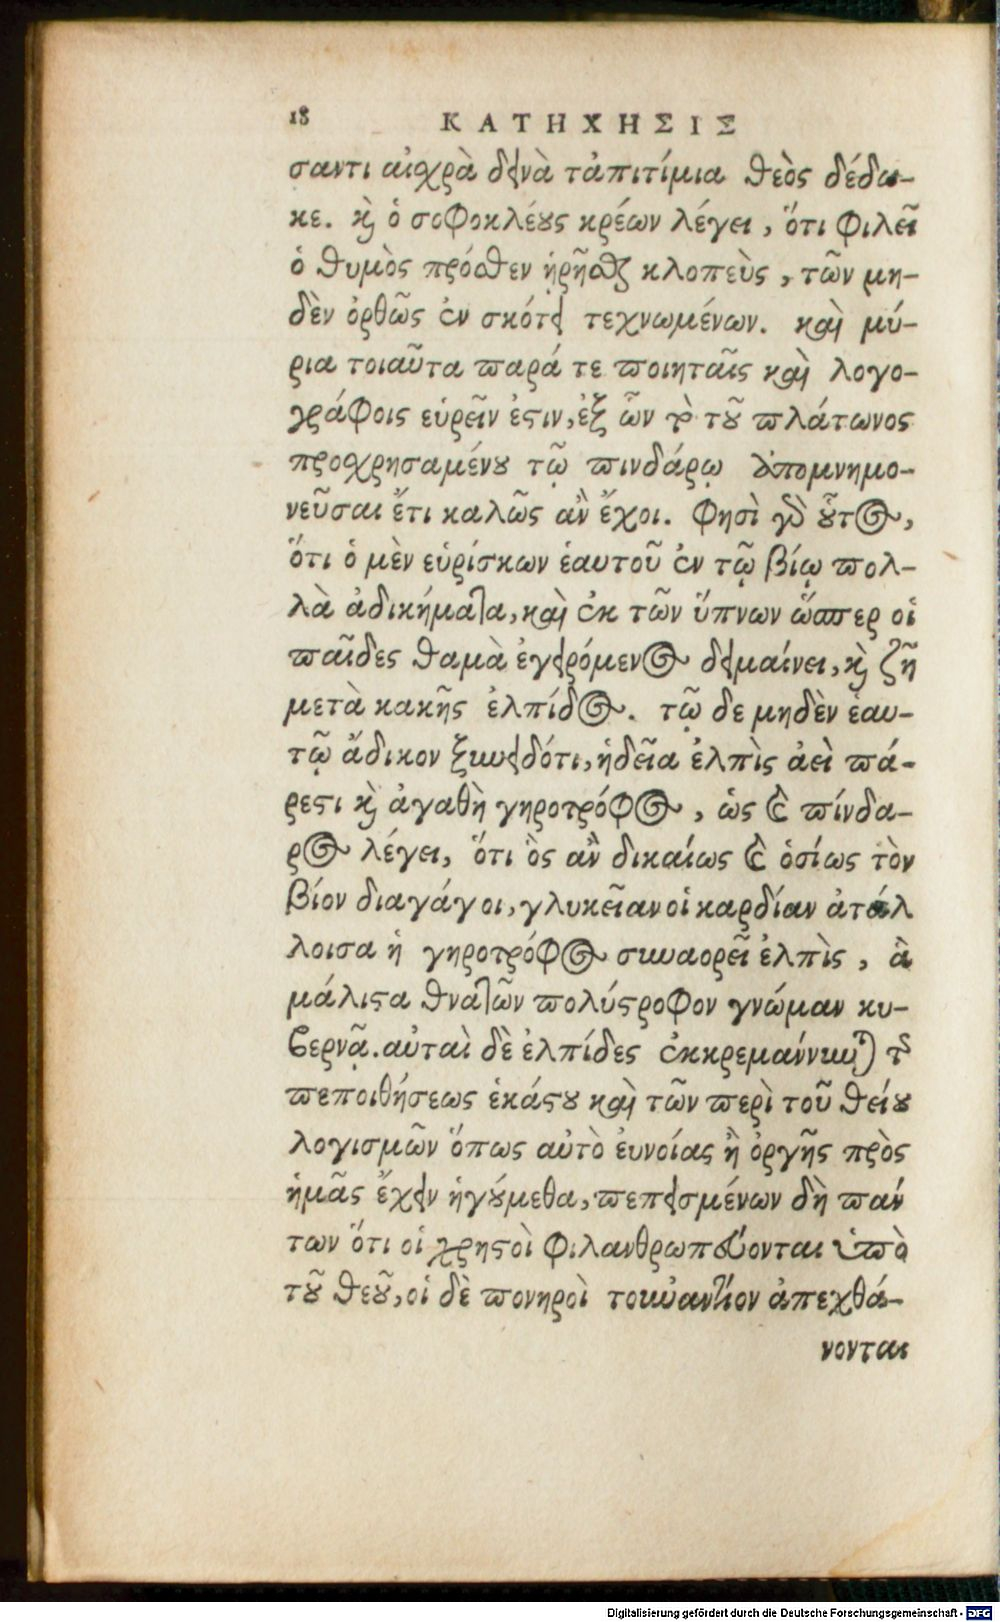 18 ΚΑΤΗΧΗΣΙΣ
σαντι αἰσχρὰ δεινὰ τἀπιτίμια θεὸς δέδω-
κε. καὶ ὁ σοφοκλέους κρέων λέγει, ὅτι φιλεῖ
ὁ θυμὸς πρόσθεν ᾑρῆσθαι κλοπεὺς, τῶν μη-
δὲν ὀρθῶς ἐν σκότει τεχνωμένων. καὶ μύ-
ρια τοιαῦτα παρά τε ποιηταῖς καὶ λογο-
γράφοις εὑρεῖν ἐστιν, ἐξ ὧν τὸ τοῦ πλάτωνος
προχρησαμένου τῷ πινδάρῳ ἀπομνημο-
νεῦσαι ἔτι καλῶς ἂν ἔχοι. φησὶ γὰρ οὗτος,
ὅτι ὁ μὲν εὑρίσκων ἑαυτοῦ ἐν τῷ βίῳ πολ-
λὰ ἀδικήματα, καὶ ἐκ τῶν ὕπνων ὥσπερ οἱ
παῖδες θαμὰ ἐγειρόμενος δειμαίνει, καὶ ζῇ
μετὰ κακῆς ἐλπίδος. τῷ δε μηδὲν ἑαυ-
τῷ ἄδικον ξυνειδότι, ἡδεῖα ἐλπὶς ἀεὶ πά-
ρεστι καὶ ἀγαθὴ γηροτρόφος, ὡς καὶ πίνδα-
ρος λέγει, ὅτι ὃς ἂν δικαίως καὶ ὁσίως τὸν
βίον διαγάγοι, γλυκεῖαν οἱ καρδίαν ἀτάλ
λοισα ἡ γηροτρόφος συναορεῖ ἐλπὶς, ἃ
μάλιστα θνατῶν πολύστροφον γνώμαν κυ-
βερνᾷ. αὐταὶ δὲ ἐλπίδες ἐκκρεμάννυνται τῆς
πεποιθήσεως ἑκάστου καὶ τῶν περὶ τοῦ θείου
λογισμῶν ὅπως αὐτὸ ἐυνοίας ἢ ὀργῆς πρὸς
ἡμᾶς ἔχειν ἡγούμεθα, πεπεισμένων δὴ πάν
των ὅτι οἱ χρηστοὶ φιλανθρωπεύονται ὑπὸ
τοῦ θεοῦ, οἱ δὲ πονηροὶ τοὐναντίον ἀπεχθά-
νονται
Digitalisierung gefördert durch die Deutsche Forschungsgemeinschaft - DFG